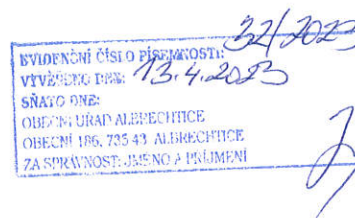 EVIDENČNÍ ČÍSLO PÍSEMNOSTI: 32/2023
VYVĚŠENO DNE: 13.4.2023
SŇATO DNE:
OBECNÍ ÚŘAD ALBRECHTICE
OBECNÍ 186, 735 43 ALBRECHTICE
ZA SPRÁVNOST: JMÉNO A PŘÍJMENÍ